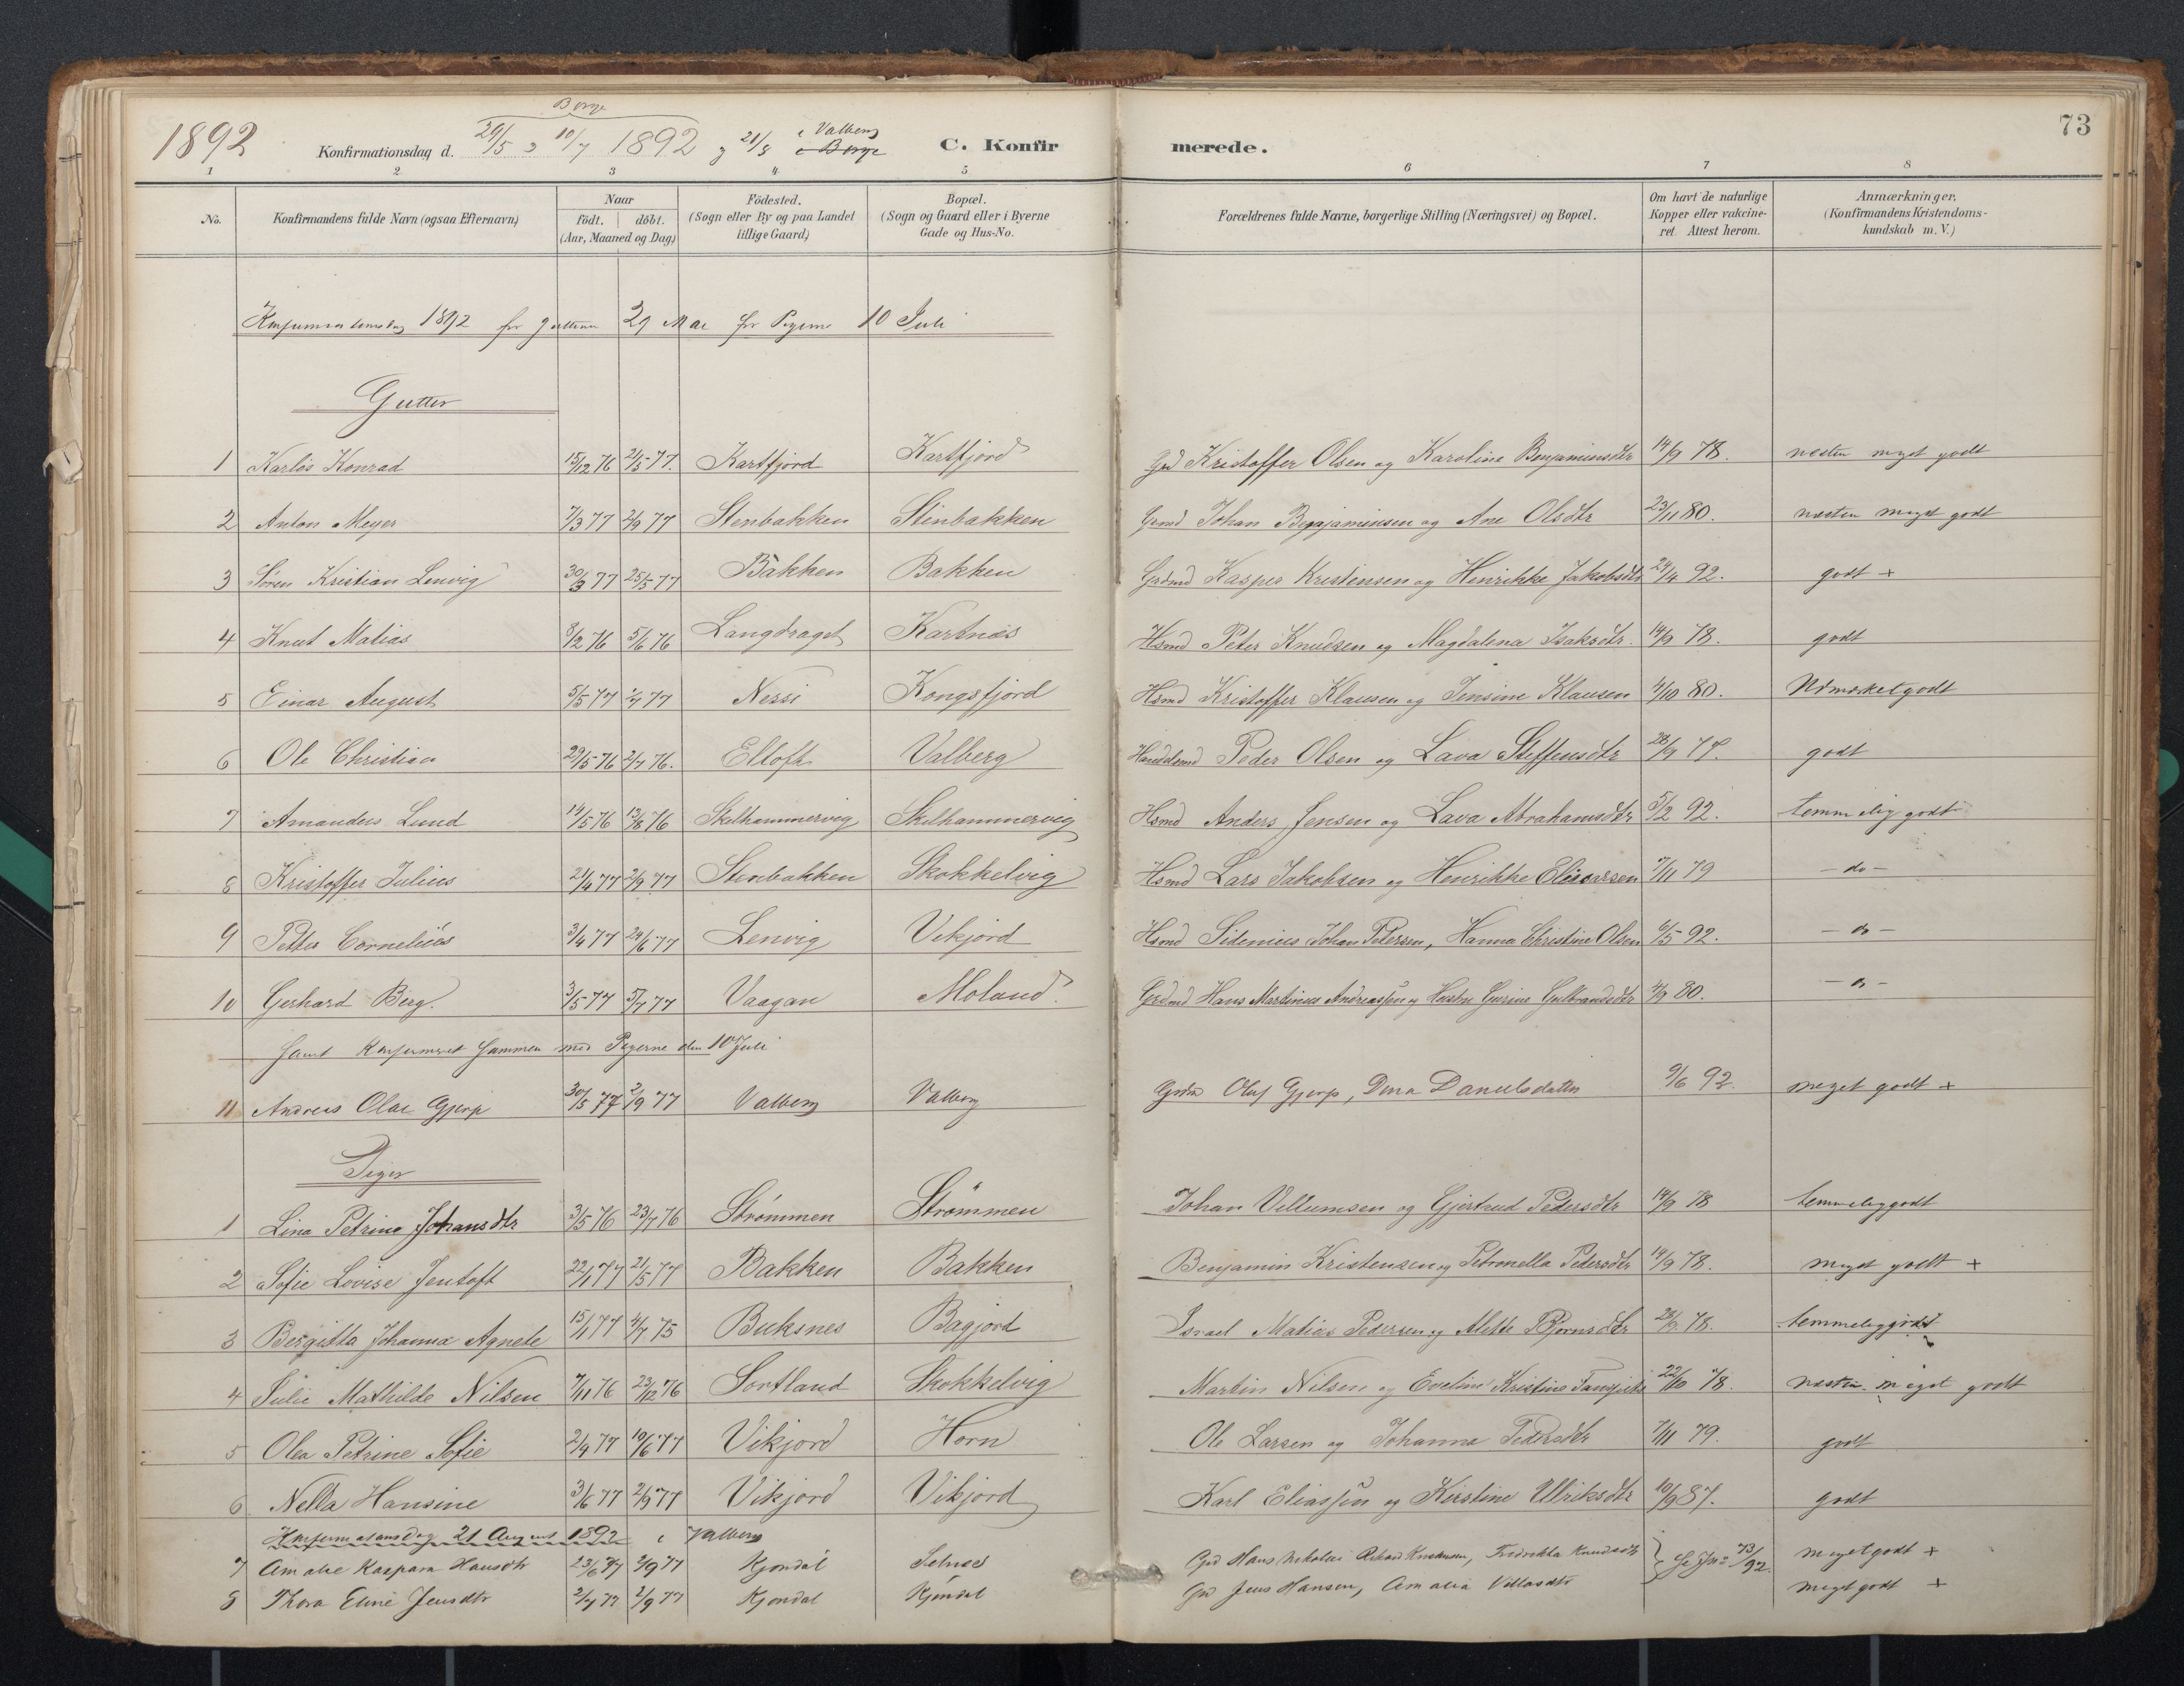 Borge
1892 Konfirmationsdag d. 29/5 o 10/7 1892 og 21/8 i Valberg i Borge C. Konfirmerede. 73
1 2 3 4 5 6 7 8
No. Konfirmandens fulde Navn (ogsaa Efternavn) Naar födt. döbt. (Aar, Maaned og Dag) Födested. (Sogn eller By og paa Landet tillige Gaard) Bopæl. (Sogn og Gaard eller i Byerne Gade og Hus-No. Forældrenes fulde Navne, borgerlige Stilling (Næringsvei) og Bopæl. Om havt de naturlige Kopper eller vakcineret. Attest herom. Anmærkninger. (Konfirmandens Kristendomskundskab m. V.)
1892 for Gutterne 29 Mai for Pigerne 10 Juli
Gutter
1 Karlös Konrad 15/12 76 21/5 77. Kartfjord Kartfjord Grd Kristoffer Olsen og Karoline Benjaminsdtr 14/9 78. næsten meget godt
2 Anton Meyer 7/3 77 2/9 77 Stenbakken Stenbakken Grmd Johan Benjaminsen og Ane Olsdtr 23/11 80. næsten meget godt
3 Sören Kristian Lenvig 30/3 77 25/5 77 Bakken Bakken Grdmd Kasper Kristensen og Henrikke Jakobsdtr 24/4 92. godt +
4 Knut Matias 8/2 76 5/6 76 Langdraget Kartnæs Hsmd Peter Knudsen og Magdalena Isaksdtr. 14/9 78. godt
5 Einar August 5/5 77 77 Nessi Kongsfjord Hsmd Kristoffer Klausen og Jensine Klausen 4/10 80. Udmærket godt
6 Ole Christian 29/5 76 2/7 76. Eltoft Valberg Handelsmd Peder Olsen og Lava Steffensdtr 28/9 77. godt
7 Amandus Lund 14/5 76 13/8 76 Skelhammervig Skelhammervig Hsmd Anders Jensen og Lava Abrahamsdtr 5/2 92. temmelig godt
8 Kristoffer Julius 21/4 77 2/9 77 Stenbakken Skokkelvig Hsmd Lars Jakobsen og Henrikke Elisarsen 7/11 79 - do -
9 Petter Cornelius 3/4 77 24/6 77 Lenvig Vikjord Hsmd Sidenius Johan Petersen, Hanna Christine Olsen 6/5 92. - do -
10 Gerhard Berg. 3/5 77 5/7 77 Vaagan Moland. Grdmd Hans Martinus Andreassen og Hustru Gurine Gulbrandsdtr 4/9 80. - do -
Samt Konfirmeret Sammen med Pigerne den 10 Juli
11 Andreas Olai Gjerp 30/5 77 2/9 77 Valberg Valberg Grdm Oluf Gjerp, Dina Danielsdatter 9/6 92. meget godt +
Piger
1 Lina Petrine Johansdtr 3/5 76 23/7 76 Strömmen Strömmen Johan Villumsen og Gjertrud Pedersdtr 14/9 78 temmelig godt
2 Sofie Lovise Jentoft 22/1 77 21/5 77 Bakken Bakken Benjamin Kristensen og Petronella Pedersdtr 14/9 78. meget godt +
3 Bergitta Johanna Agnete 15/1 77 4/7 75 Buksnes Bagjord Israel Matias Pedersen og Alette Björnsdtr 28/9 78. temmelig godt
4 Julie Mathilde Nilsen 7/11 76 23/12 76 Sortland Skokkelvig Martin Nilsen og Eveline Kristine 22/10 78. næsten meget godt
5 Olea Petrine Sofie 2/4 77 10/6 77 Vikjord Horn Ole Larsen og Johanna Pedersdtr 7/11 79. godt
6. Nella Hansine 3/6 77 2/9 77 Vikjord Vikjord Karl Eliassen og Kirstine Ulriksdtr 10/9 87. godt
Konfirmationsdag 21 August 1892 i Valberg
7 Amalie Kaspara Hansdtr 23/6 77 2/9 77 Kjondal Selnes Grd Hans Nikolai Rikard Kristensen, Fredrikka Knudsdtr Se Jno 73/92. meget godt +
8 Thora Eline Jensdtr 2/7 77 2/9 77 Kjondal Kjöndal Grd Jens Hansen, Amalia Villasdtr meget godt +